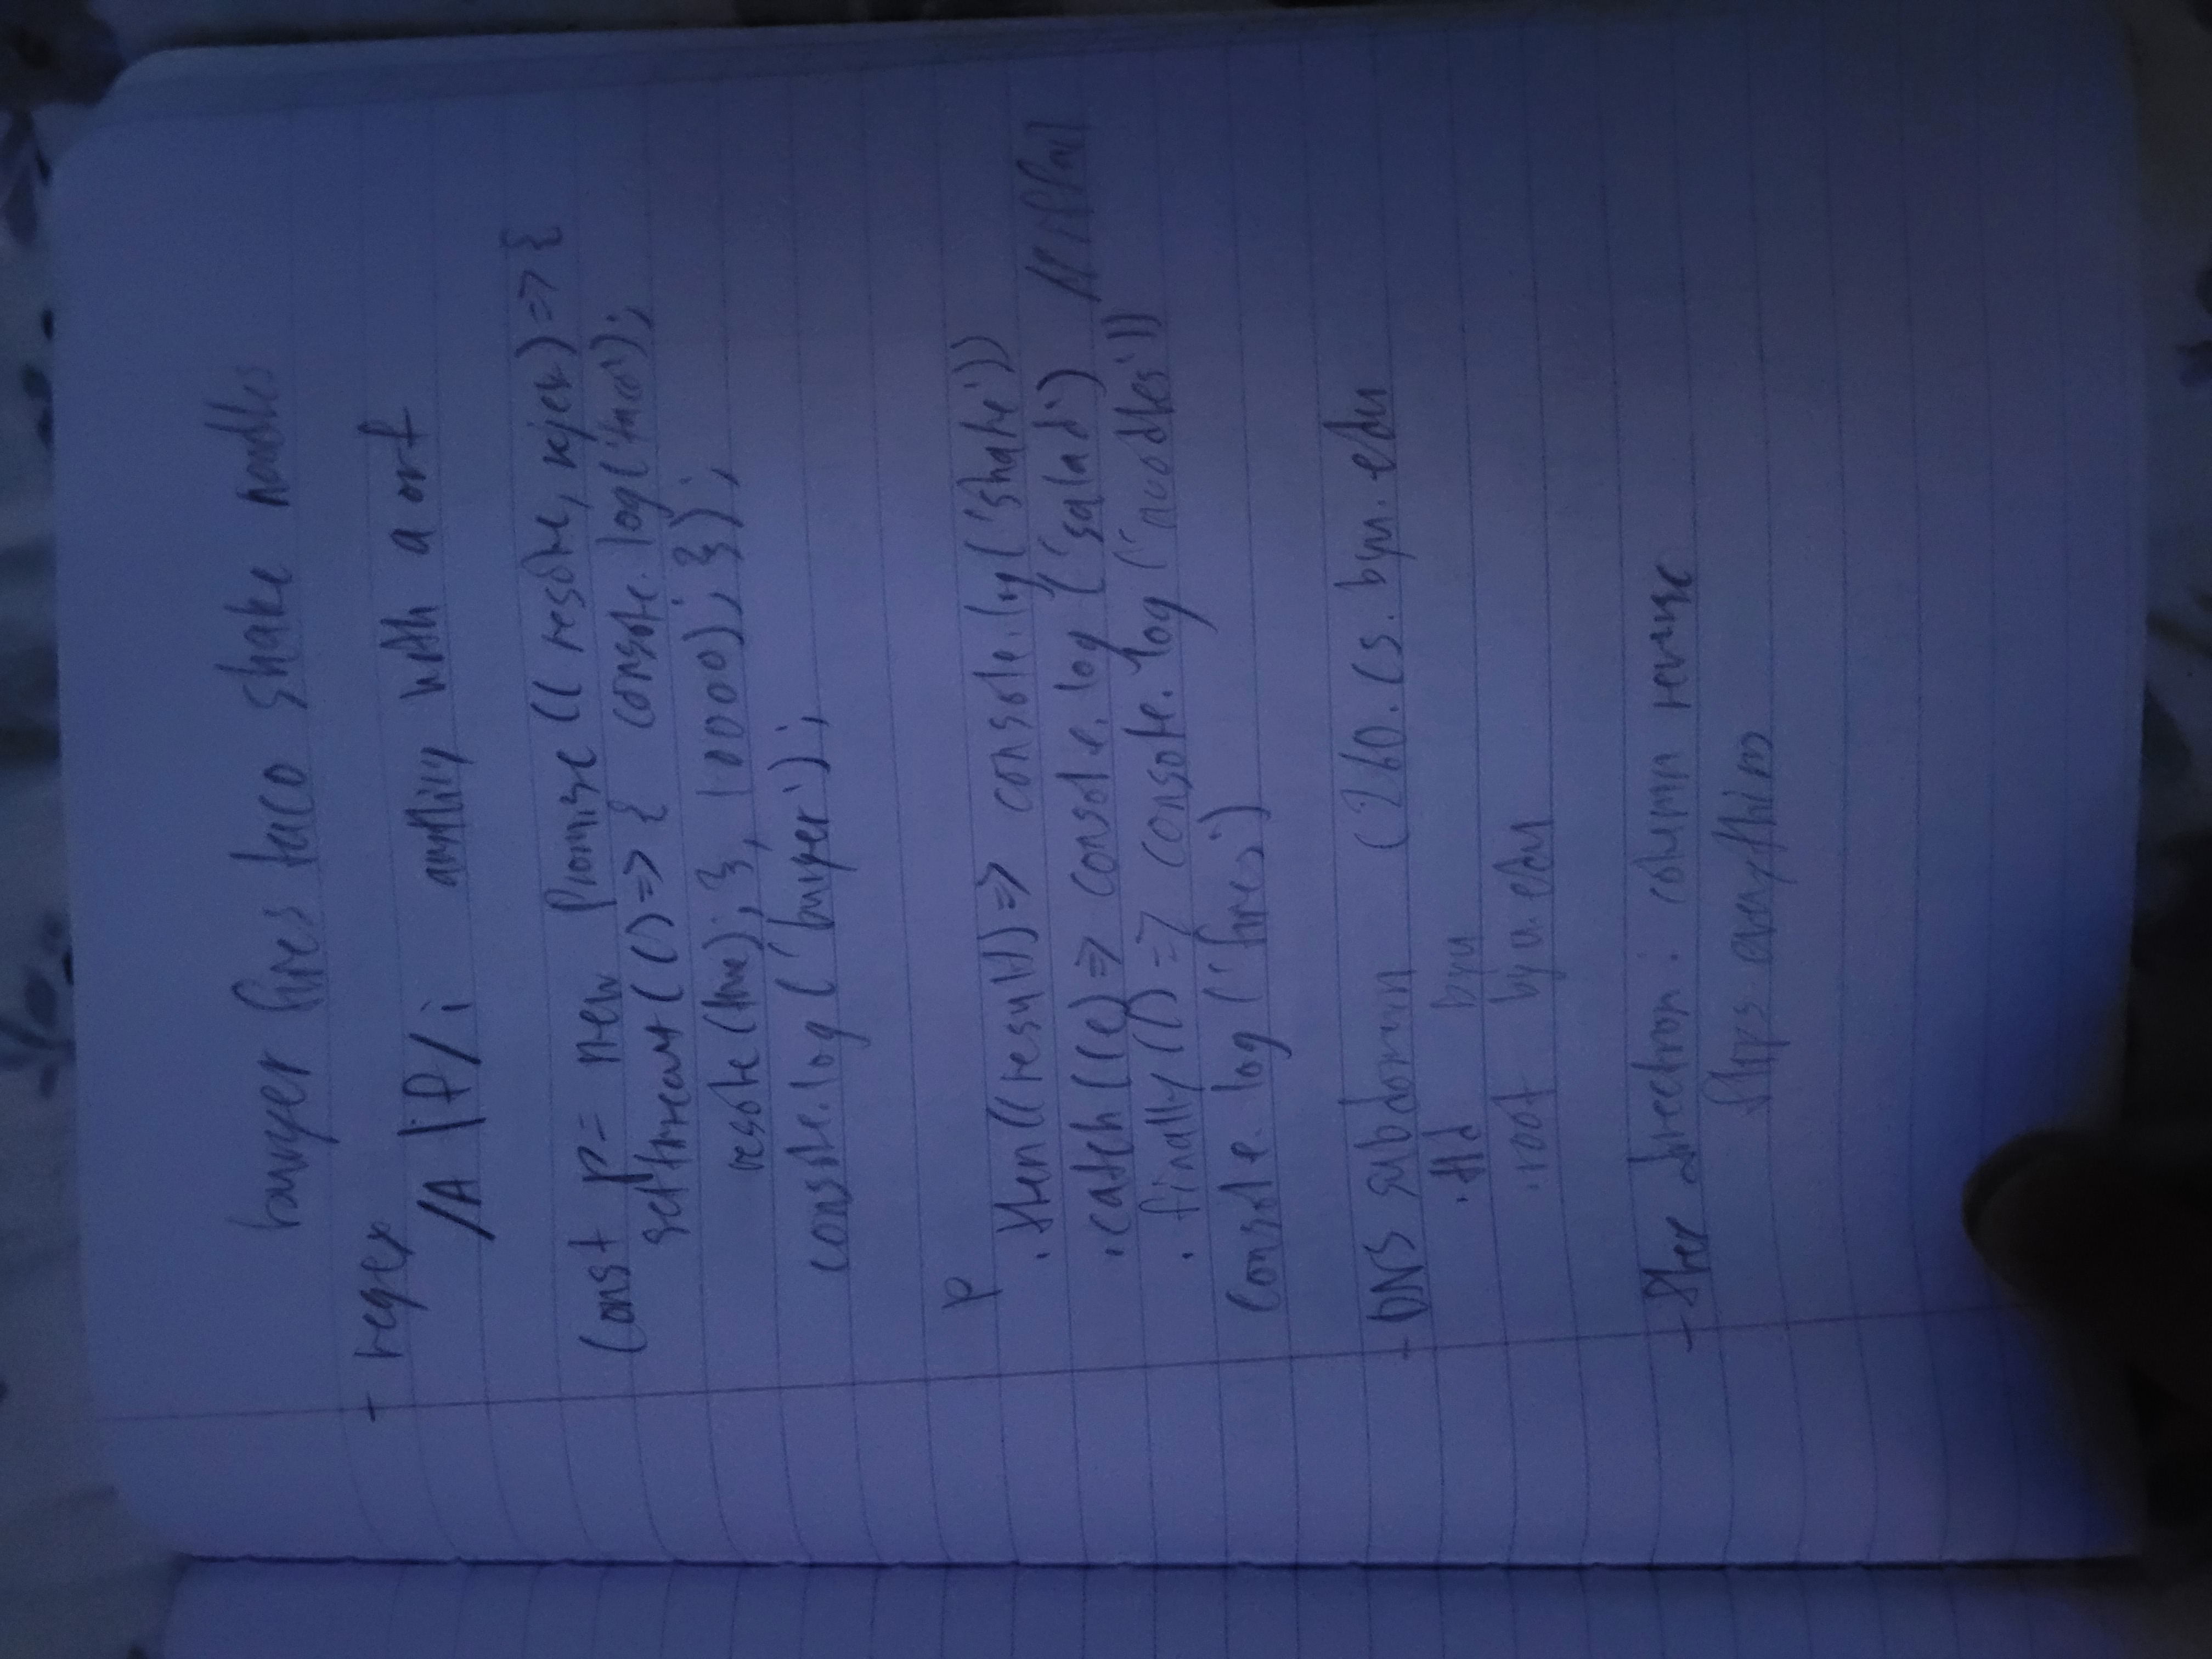 burger fires taco shake noodles
- regex
/A|f/i anything with a or f
const p = new Promise((resolve, reject) => {
setTimeout(() => { console.log('taco');
resolve(true); }, 10000); });
console.log('burger');
p
.then((result) => console.log('shake'))
.catch((e) => console.log('salad') // if fail
.finally(() => console.log('noodles'))
console.log('fires')
- DNS subdomain C260.cs.byu.edu
.tld byu
.root byu.edu
- flex direction: column reverse
flips everything